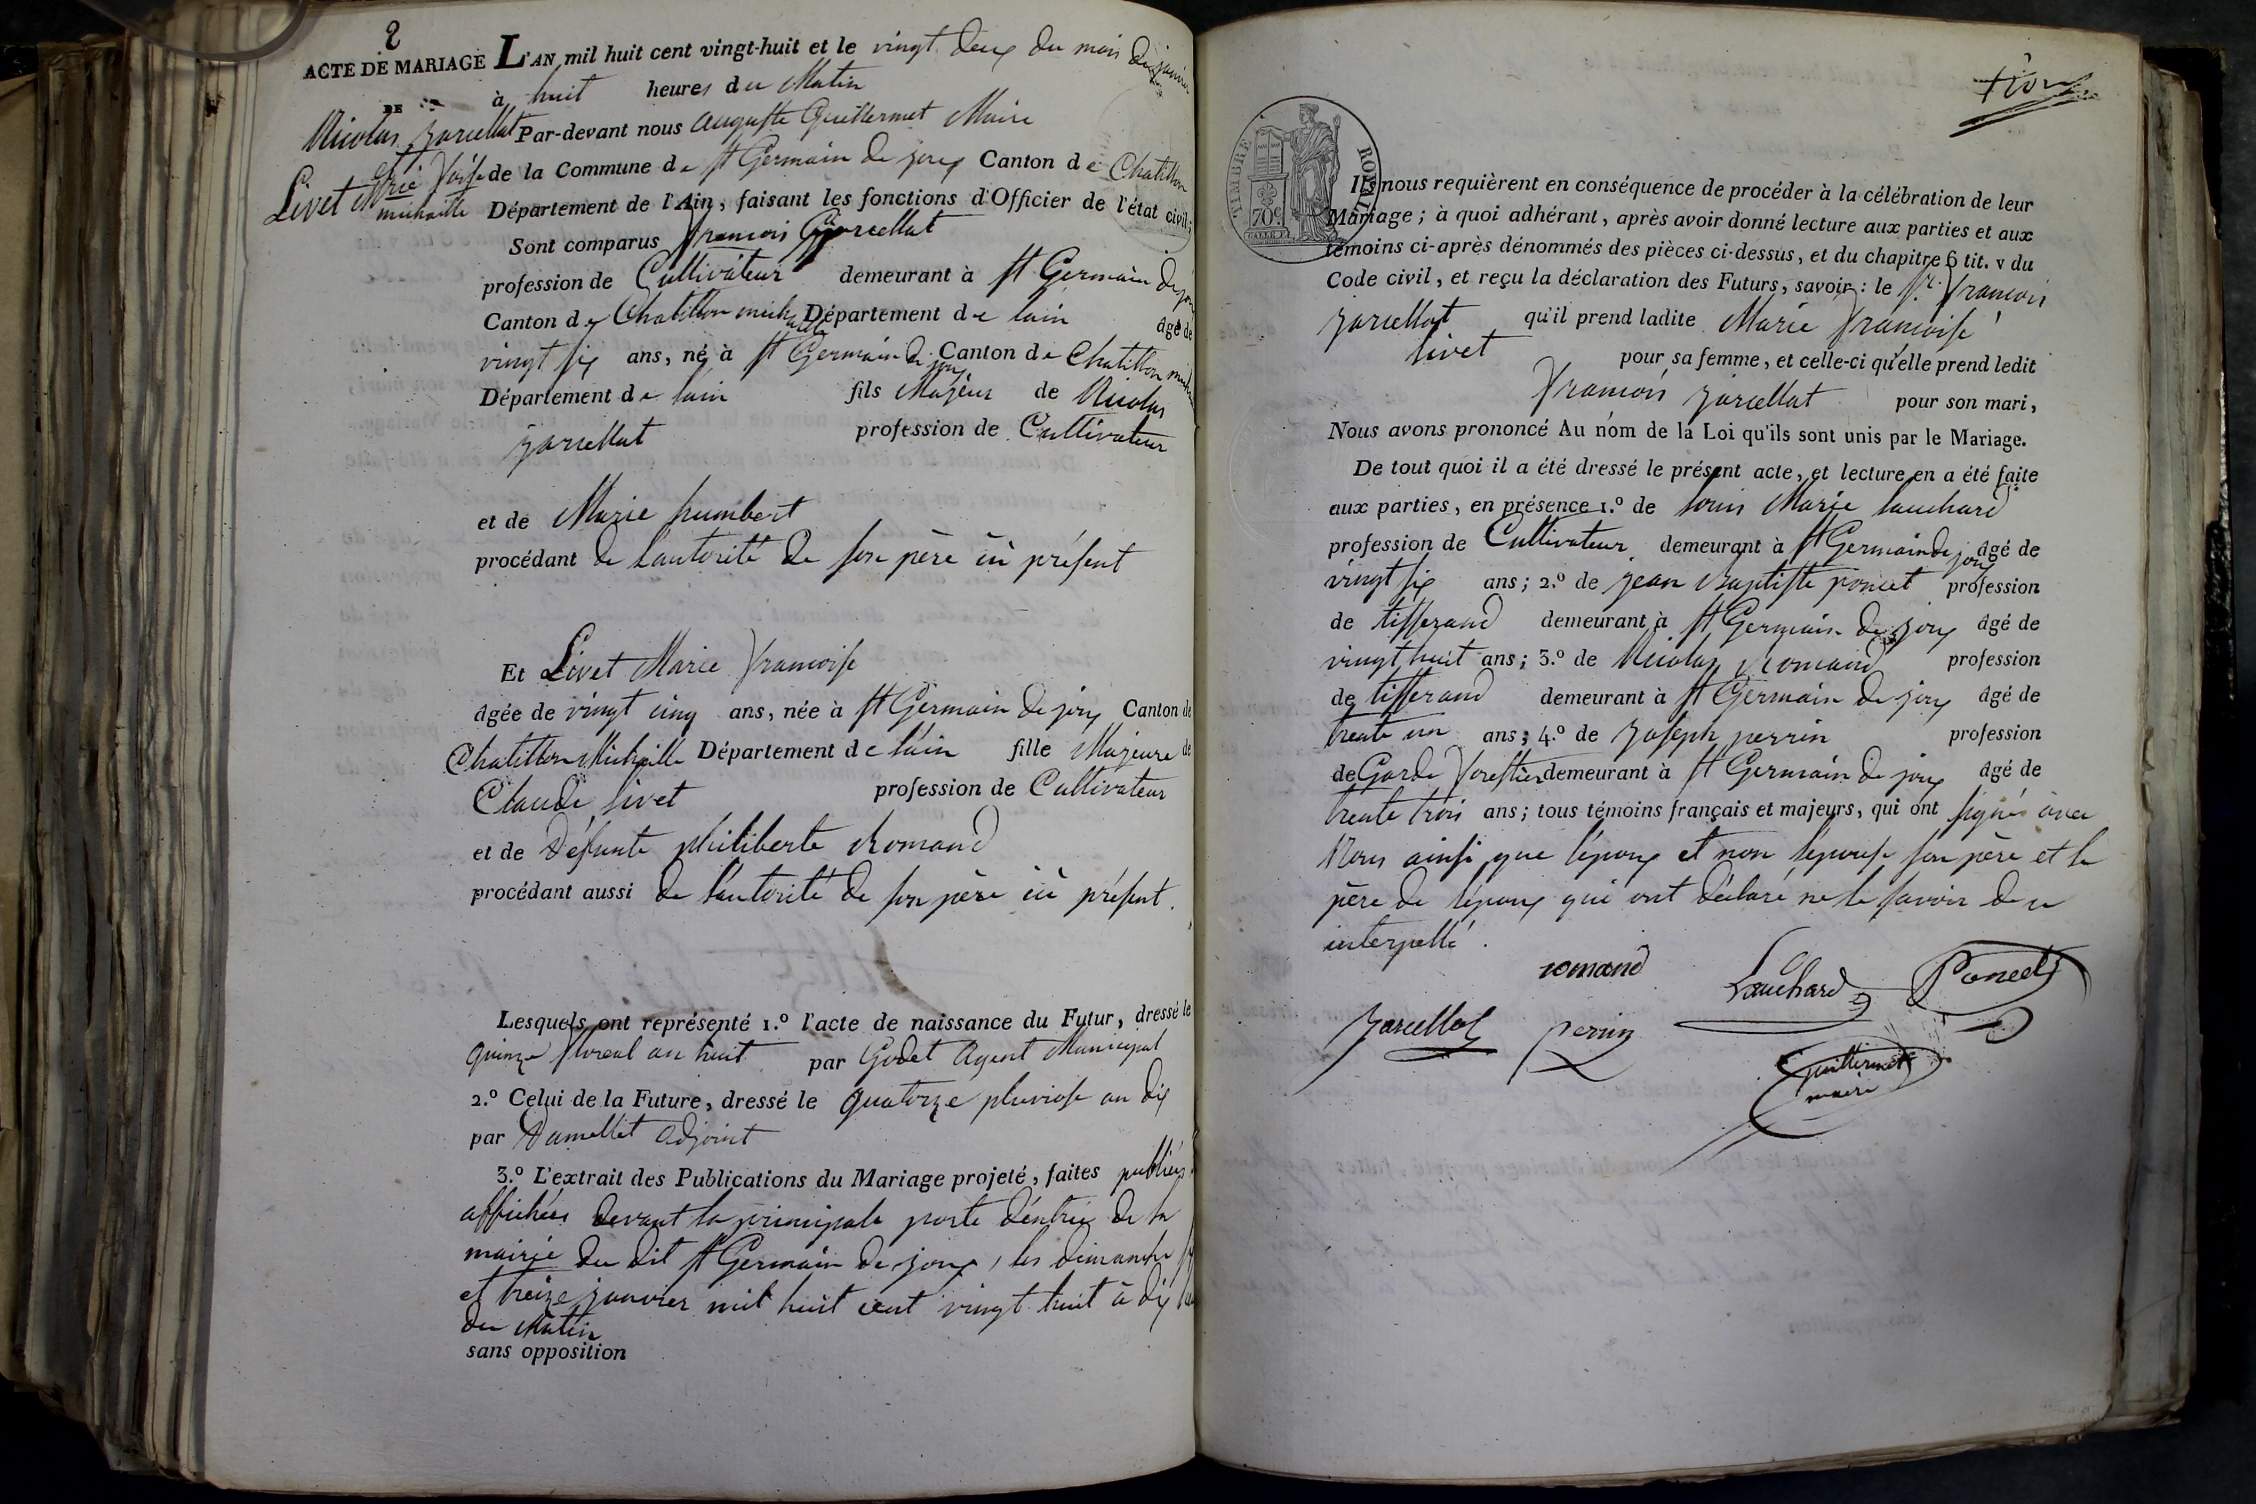 2
ACTE DE MARIAGE L'AN mil huit cent vingt-huit et le vingt deux du mois de janvier
DE à huit heures du Matin
Nicolas Par-devant nous Auguste Guillermet Maire
de la Commune de St Germain de joux Canton de Chatillon
Livet
michaille Département de l'Ain, faisant les fonctions d'Officier de l'état civil;
Sont comparus francois
profession de Cultivateur demeurant à St Germain de joux
Canton de Chatillon michaille Département de lain âgé de
vingt six ans, né à St Germain de joux Canton de Chatillon
Département de lain fils Majeur de Nicolas
jarcellat profession de Cultivateur
et de Marie humbert
procédant de l'autorité de son père ici présent
Et Livet Marie francoise
âgée de vingt cinq ans, née à St Germain de joux Canton de
Chatillon Michaille Département de l'ain fille Majeure de
Claude livet profession de Cultivateur
et de Défunte philiberte Romand
procédant aussi de l'autorité de son père ici présent.
Lesquels ont représenté 1.º l'acte de naissance du Futur, dressé le
quinze floreal an huit par Godet Agent Municipal
2.º Celui de la Future, dressé le quatorze pluviose an dix
par adjoint
3.º L'extrait des Publications du Mariage projeté, faites publiées
affichées devant la principale porte d'entrée de la
mairie du dit St Germain de joux, les dimanche
et treize janvier mil huit cent vingt huit à dix
du Matin
sans opposition
TIMBRE ROYAL
70c
Ils nous requièrent en conséquence de procéder à la célébration de leur
Mariage; à quoi adhérant, après avoir donné lecture aux parties et aux
témoins ci-après dénommés des pièces ci-dessus, et du chapitre 6 tit. v du
Code civil, et reçu la déclaration des Futurs, savoir: le Sr. francois
jarcellat qu'il prend ladite Marie francoise
livet pour sa femme, et celle-ci qu'elle prend ledit
francois jarcellat pour son mari,
Nous avons prononcé Au nom de la Loi qu'ils sont unis par le Mariage.
De tout quoi il a été dressé le présent acte, et lecture en a été faite
aux parties, en présence 1.º de louis Marie lauchard
profession de Cultivateur demeurant à St Germain de joux âgé de
vingt six ans; 2.º de jean Baptiste poncet profession
de tisserand demeurant à St Germain de joux âgé de
vingt huit ans; 3.º de Nicolas Romand profession
de tisserand demeurant à St Germain de joux âgé de
trente un ans; 4.º de joseph perrin profession
de Garde forestier demeurant à St Germain de joux âgé de
trente trois ans; tous témoins français et majeurs, qui ont signés avec
Nous ainsi que l'époux et non l'épouse son père et le
père de l'époux qui ont déclaré ne le savoir de ce
interpellé.
romand Lauchard Poncet
jarcellat perrin
Guillermet
maire